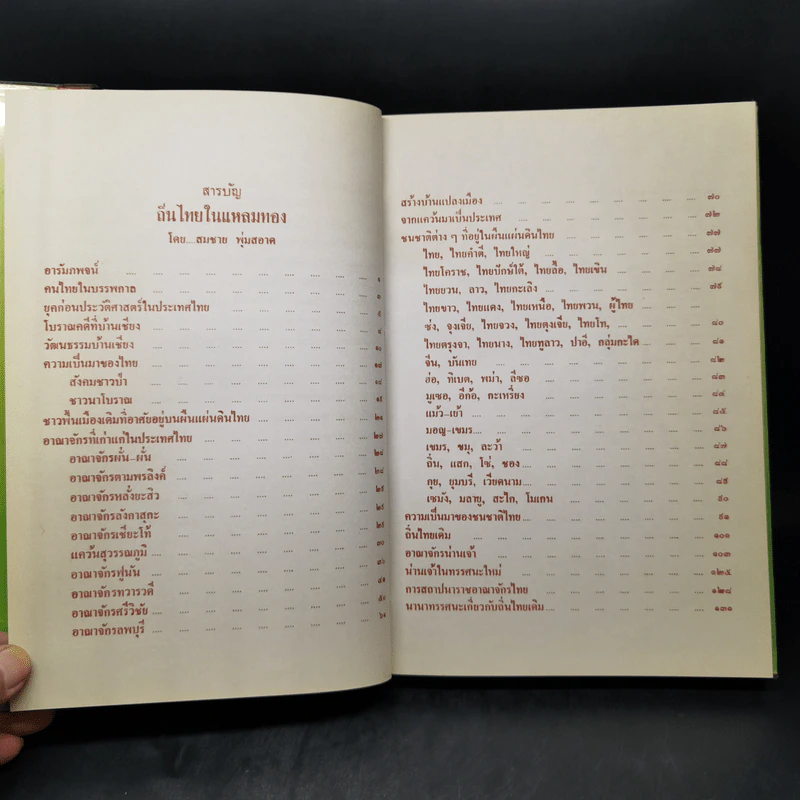 สารบัญ
ถิ่นไทยในแหลมทอง
โดย....สมชาย พุ่มสอาด
อารัมภพจน์ .... .... .... .... .... .... .... ๑
คนไทยในบรรพกาล .... .... .... .... .... .... ๓
ยุคก่อนประวัติศาสตร์ในประเทศไทย .... .... .... .... ๕
โบราณคดีที่บ้านเชียง .... .... .... .... .... ....
วัฒนธรรมบ้านเชียง .... .... .... .... .... .... ๑๐
ความเป็นมาของไทย .... .... .... .... .... .... ๑๘
สังคมชาวป่า .... .... .... .... .... .... ๑๘
ชาวนาโบราณ .... .... .... .... .... .... ๑๙
ชาวพื้นเมืองเดิมที่อาศัยอยู่บนผืนแผ่นดินไทย .... .... .... ๒๑
อาณาจักรที่เก่าแก่ในประเทศไทย .... .... .... .... ๒๘
อาณาจักรผั่น-ผั่น .... .... .... .... .... ๒๘
อาณาจักรตามพรลิงค์ .... .... .... .... .... ๒๘
อาณาจักรหลั่งยะสิว .... .... .... .... .... ๒๙
อาณาจักรลังกาสุกะ .... .... .... .... .... ๒๙
อาณาจักรเชียะโท้ .... .... .... .... .... ๒๙
แคว้นสุวรรณภูมิ .... .... .... .... .... ๓๐
อาณาจักรฟูนัน .... .... .... .... .... ๓๖
อาณาจักรทวารวดี .... .... .... .... .... ๔๑
อาณาจักรศรีวิชัย .... .... .... .... .... ๕๐
อาณาจักรลพบุรี .... .... .... .... .... ๖๑
สร้างบ้านแปลงเมือง .... .... .... .... .... .... ๗๐
จากแคว้นมาเป็นประเทศ .... .... .... .... .... ๗๒
ชนชาติต่าง ๆ ที่อยู่ในผืนแผ่นดินไทย .... .... .... .... ๗๗
ไทย, ไทยคำตี่, ไทยใหญ่ .... .... .... .... ๗๗
ไทยโคราช, ไทยปักษ์ใต้, ไทยลื้อ, ไทยเขิน .... .... ๗๘
ไทยยวน, ลาว, ไทยกะเลิง .... .... .... .... ๗๙
ไทยขาว, ไทยแดง, ไทยเหนือ, ไทยพวน, ผู้ไทย
ซ่ง, จุงเจีย, ไทยจวง, ไทยตุงเจีย, ไทยโท, .... .... ๘๐
ไทยตรุงจา, ไทยนาง, ไทยทูลาว, ปาอี, กลุ่มกะได .... .... ๘๑
จีน, บันเทย .... .... .... .... .... ๘๒
ฮ่อ, ทิเบต, พม่า, ลีซอ .... .... .... .... ๘๓
มูเซอ, อีก้อ, กะเหรี่ยง .... .... .... .... ๘๔
แม้ว-เย้า .... .... .... .... .... ๘๕
มอญ-เขมร .... .... .... .... .... ๘๖
เขมร, ขมุ, ละว้า .... .... .... .... .... ๘๗
ถิ่น, แสก, โซ่, ชอง .... .... .... .... ๘๘
กุย, ยุมบรี, เวียดนาม .... .... .... .... ๘๙
เซมัง, มลายู, สะไก, โมแกน .... .... .... .... ๙๐
ความเป็นมาของชนชาติไทย .... .... .... .... .... ๙๑
ถิ่นไทยเดิม .... .... .... .... .... .... ๑๐๑
อาณาจักรน่านเจ้า .... .... .... .... .... .... ๑๐๓
น่านเจ้าในทรรศนะใหม่ .... .... .... .... .... ๑๒๕
การสถาปนาราชอาณาจักรไทย .... .... .... .... .... ๑๒๘
นานาทรรศนะเกี่ยวกับถิ่นไทยเดิม .... .... .... .... ๑๓๑